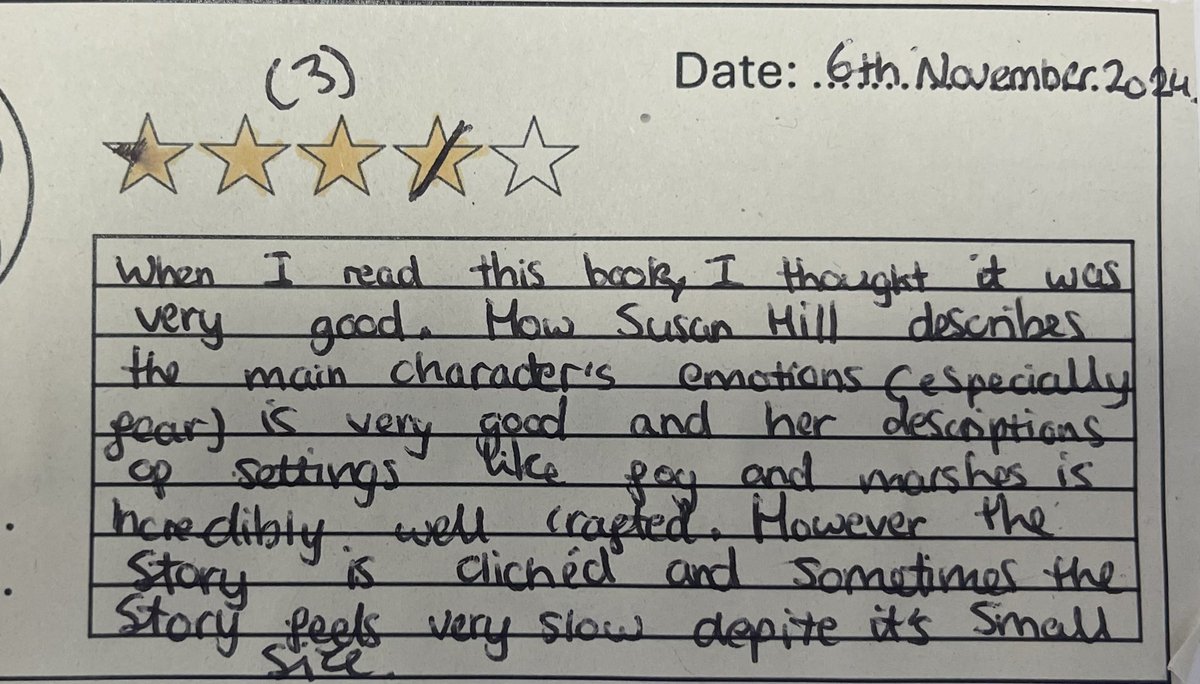 (3)
Date: 6th. November. 2024.
When I read this book, I thought it was
very good. How Susan Hill describes
the main character's emotions (especially
fear) is very good and her descriptions
of settings like fog and marshes is
incredibly well crafted. However the
story is clichéd and sometimes the
story feels very slow depite it's small
size.